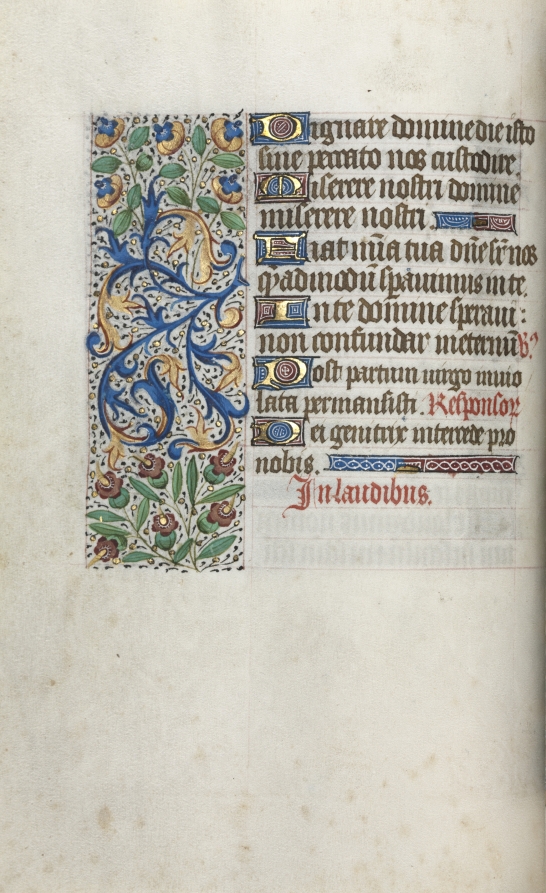 Dignare domine die isto
sine peccato nos custodire.
Miserere nostri domine
miserere nostri.
Fiat mĩa tua dñe sr̃ nos
q̃admodũ sperauimus in te.
In te domine speraui:
non confundar in eternum. V.
Post partum uirgo inuio
lata permansisti. Responsor
Dei genitrix intercede pro
nobis.
In laudibus.